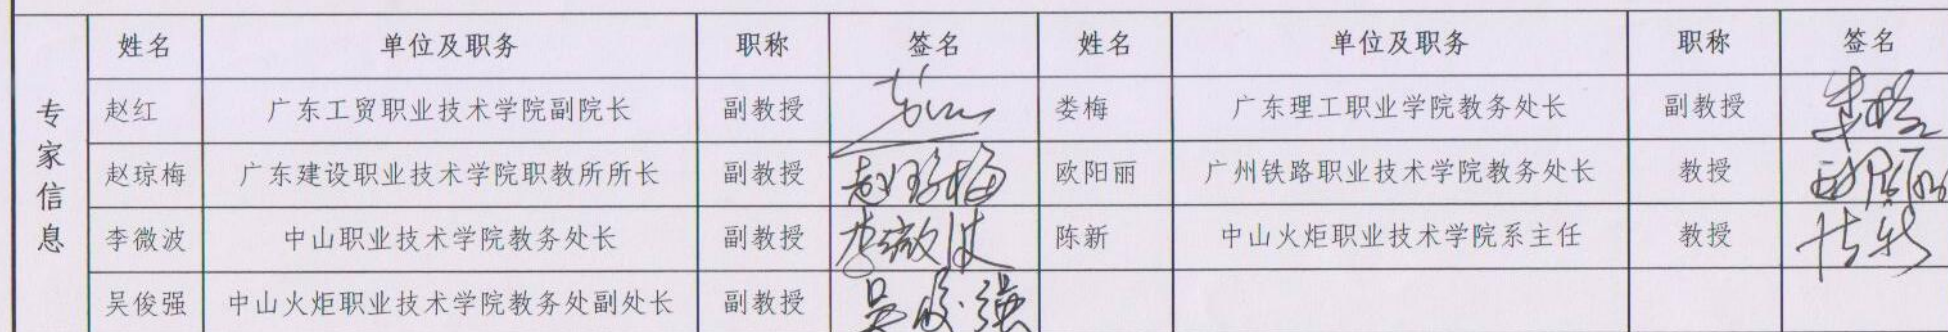 姓名 单位及职务 职称 签名 姓名 单位及职务 职称 签名
专家信息
赵红 广东工贸职业技术学院副院长 副教授 娄梅 广东理工职业学院教务处长 副教授
赵琼梅 广东建设职业技术学院职教所所长 副教授 赵琼梅 欧阳丽 广州铁路职业技术学院教务处长 教授
李微波 中山职业技术学院教务处长 副教授 李微波 陈新 中山火炬职业技术学院系主任 教授
吴俊强 中山火炬职业技术学院教务处副处长 副教授 吴俊强